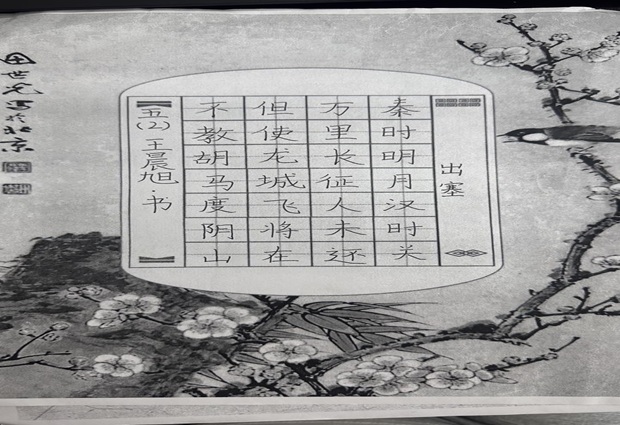 出塞
秦时明月汉时关
万里长征人未还
但使龙城飞将在
不教胡马度阴山
五(2)王晨旭·书
田世光写于北京